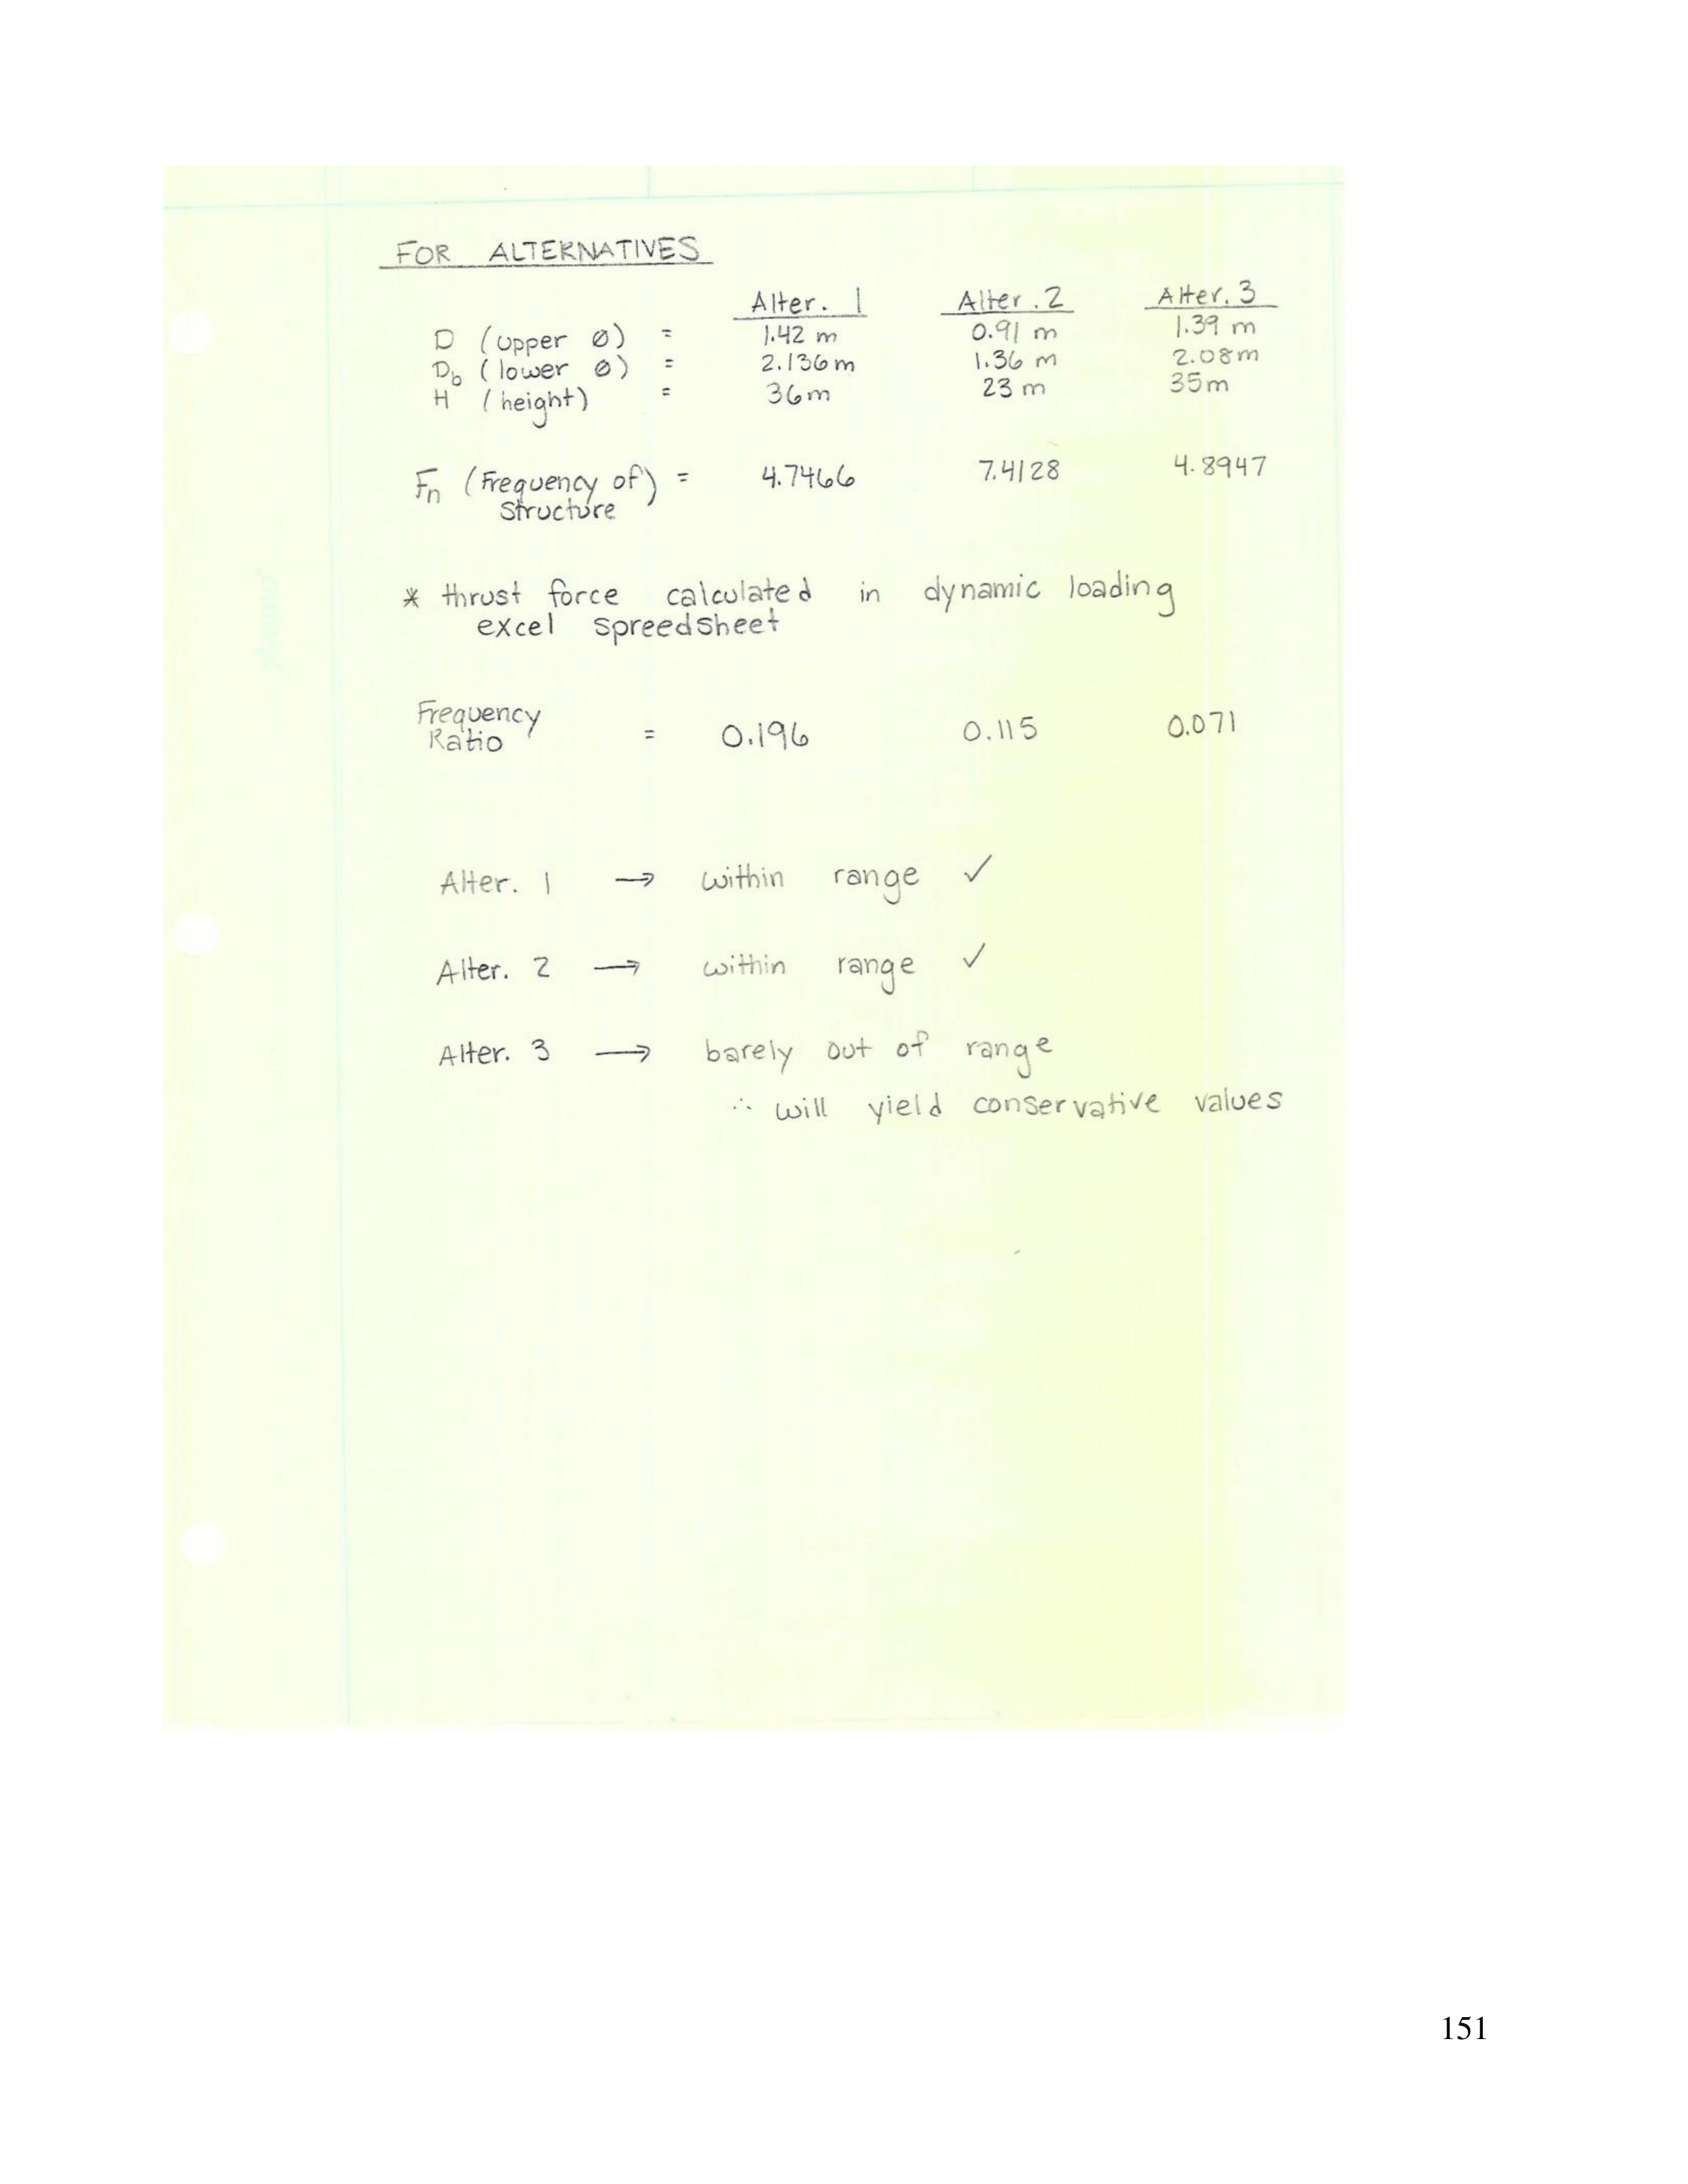 FOR ALTERNATIVES
Alter. 1 Alter. 2 Alter. 3
D (upper ∅) = 1.42 m 0.91 m 1.39 m
Db (lower ∅) = 2.136m 1.36 m 2.08m
H (height) = 36m 23 m 35m
Fn (Frequency of) = 4.7466 7.4128 4.8947
Structure
* thrust force calculated in dynamic loading
excel spreedsheet
Frequency
Ratio = 0.196 0.115 0.071
Alter. 1 → within range ✓
Alter. 2 → within range ✓
Alter. 3 → barely out of range
∴ will yield conservative values
151